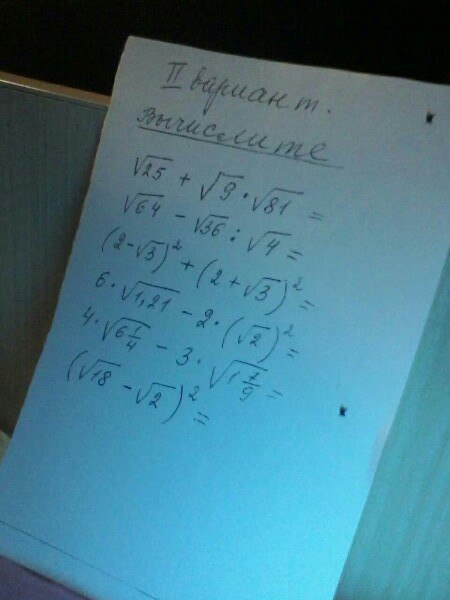 II вариант.
Вычислите
√25 + √9 · √81 =
√64 - √36 : √4 =
(2-√3)² + (2+√3)² =
6 · √1,21 - 2 · (√2)² =
4 · √6 1/4 - 3 · √1 7/9 =
(√18 - √2)² =